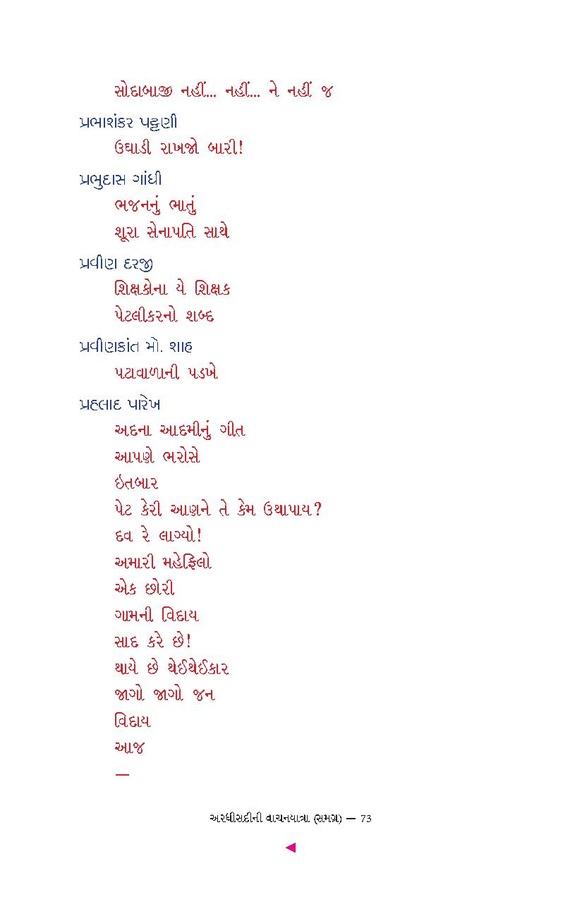 સોદાબાજી નહીં... નહીં... ને નહીં જ
પ્રભાશંકર પટ્ટણી
ઉઘાડી રાખજો બારી!
પ્રભુદાસ ગાંધી
ભજનનું ભાતું
શૂરા સેનાપતિ સાથે
પ્રવીણ દરજી
શિક્ષકોના યે શિક્ષક
પેટલીકરનો શબ્દ
પ્રવીણકાંત મો. શાહ
પટાવાળાની પડખે
પ્રહલાદ પારેખ
અદના આદમીનું ગીત
આપણે ભરોસે
ઇતબાર
પેટ કેરી આણને તે કેમ ઉથાપાય?
દવ રે લાગ્યો!
અમારી મહેફિલો
એક છોરી
ગામની વિદાય
સાદ કરે છે!
થાયે છે થેઈથેઈકાર
જાગો જાગો જન
વિદાય
આજ
—
અરધીસદીની વાચનયાત્રા (સમગ્ર) — 73